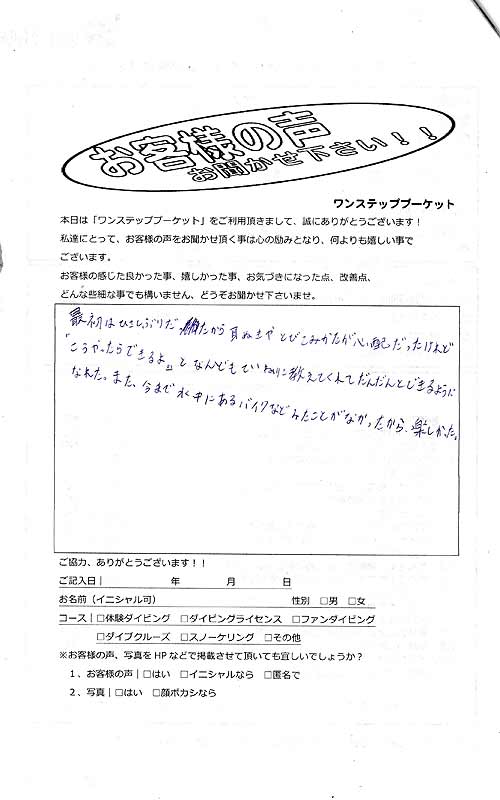 お客様の声
お聞かせ下さい！！
ワンステッププーケット
本日は「ワンステッププーケット」をご利用頂きまして、誠にありがとうございます！
私達にとって、お客様の声をお聞かせ頂く事は心の励みとなり、何よりも嬉しい事で
ございます。
お客様の感じた良かった事、嬉しかった事、お気づきになった点、改善点、
どんな些細な事でも構いません、どうぞお聞かせ下さいませ。
最初はひさしぶりだったから耳ぬきやとびこみかたが心配だったけれど
「こうやったらできるよ。」となんどもていねいに教えてくれてだんだんとできるように
なれた。また、今まで水中にあるバイクなどみたことがなかったから、楽しかった。
ご協力、ありがとうございます！！
ご記入日｜ 年 月 日
お名前（イニシャル可） 性別 □男 □女
コース｜□体験ダイビング □ダイビングライセンス □ファンダイビング
□ダイブクルーズ □スノーケリング □その他
※お客様の声、写真をHPなどで掲載させて頂いても宜しいでしょうか？
１、お客様の声｜□はい □イニシャルなら □匿名で
２、写真｜□はい □顔ボカシなら